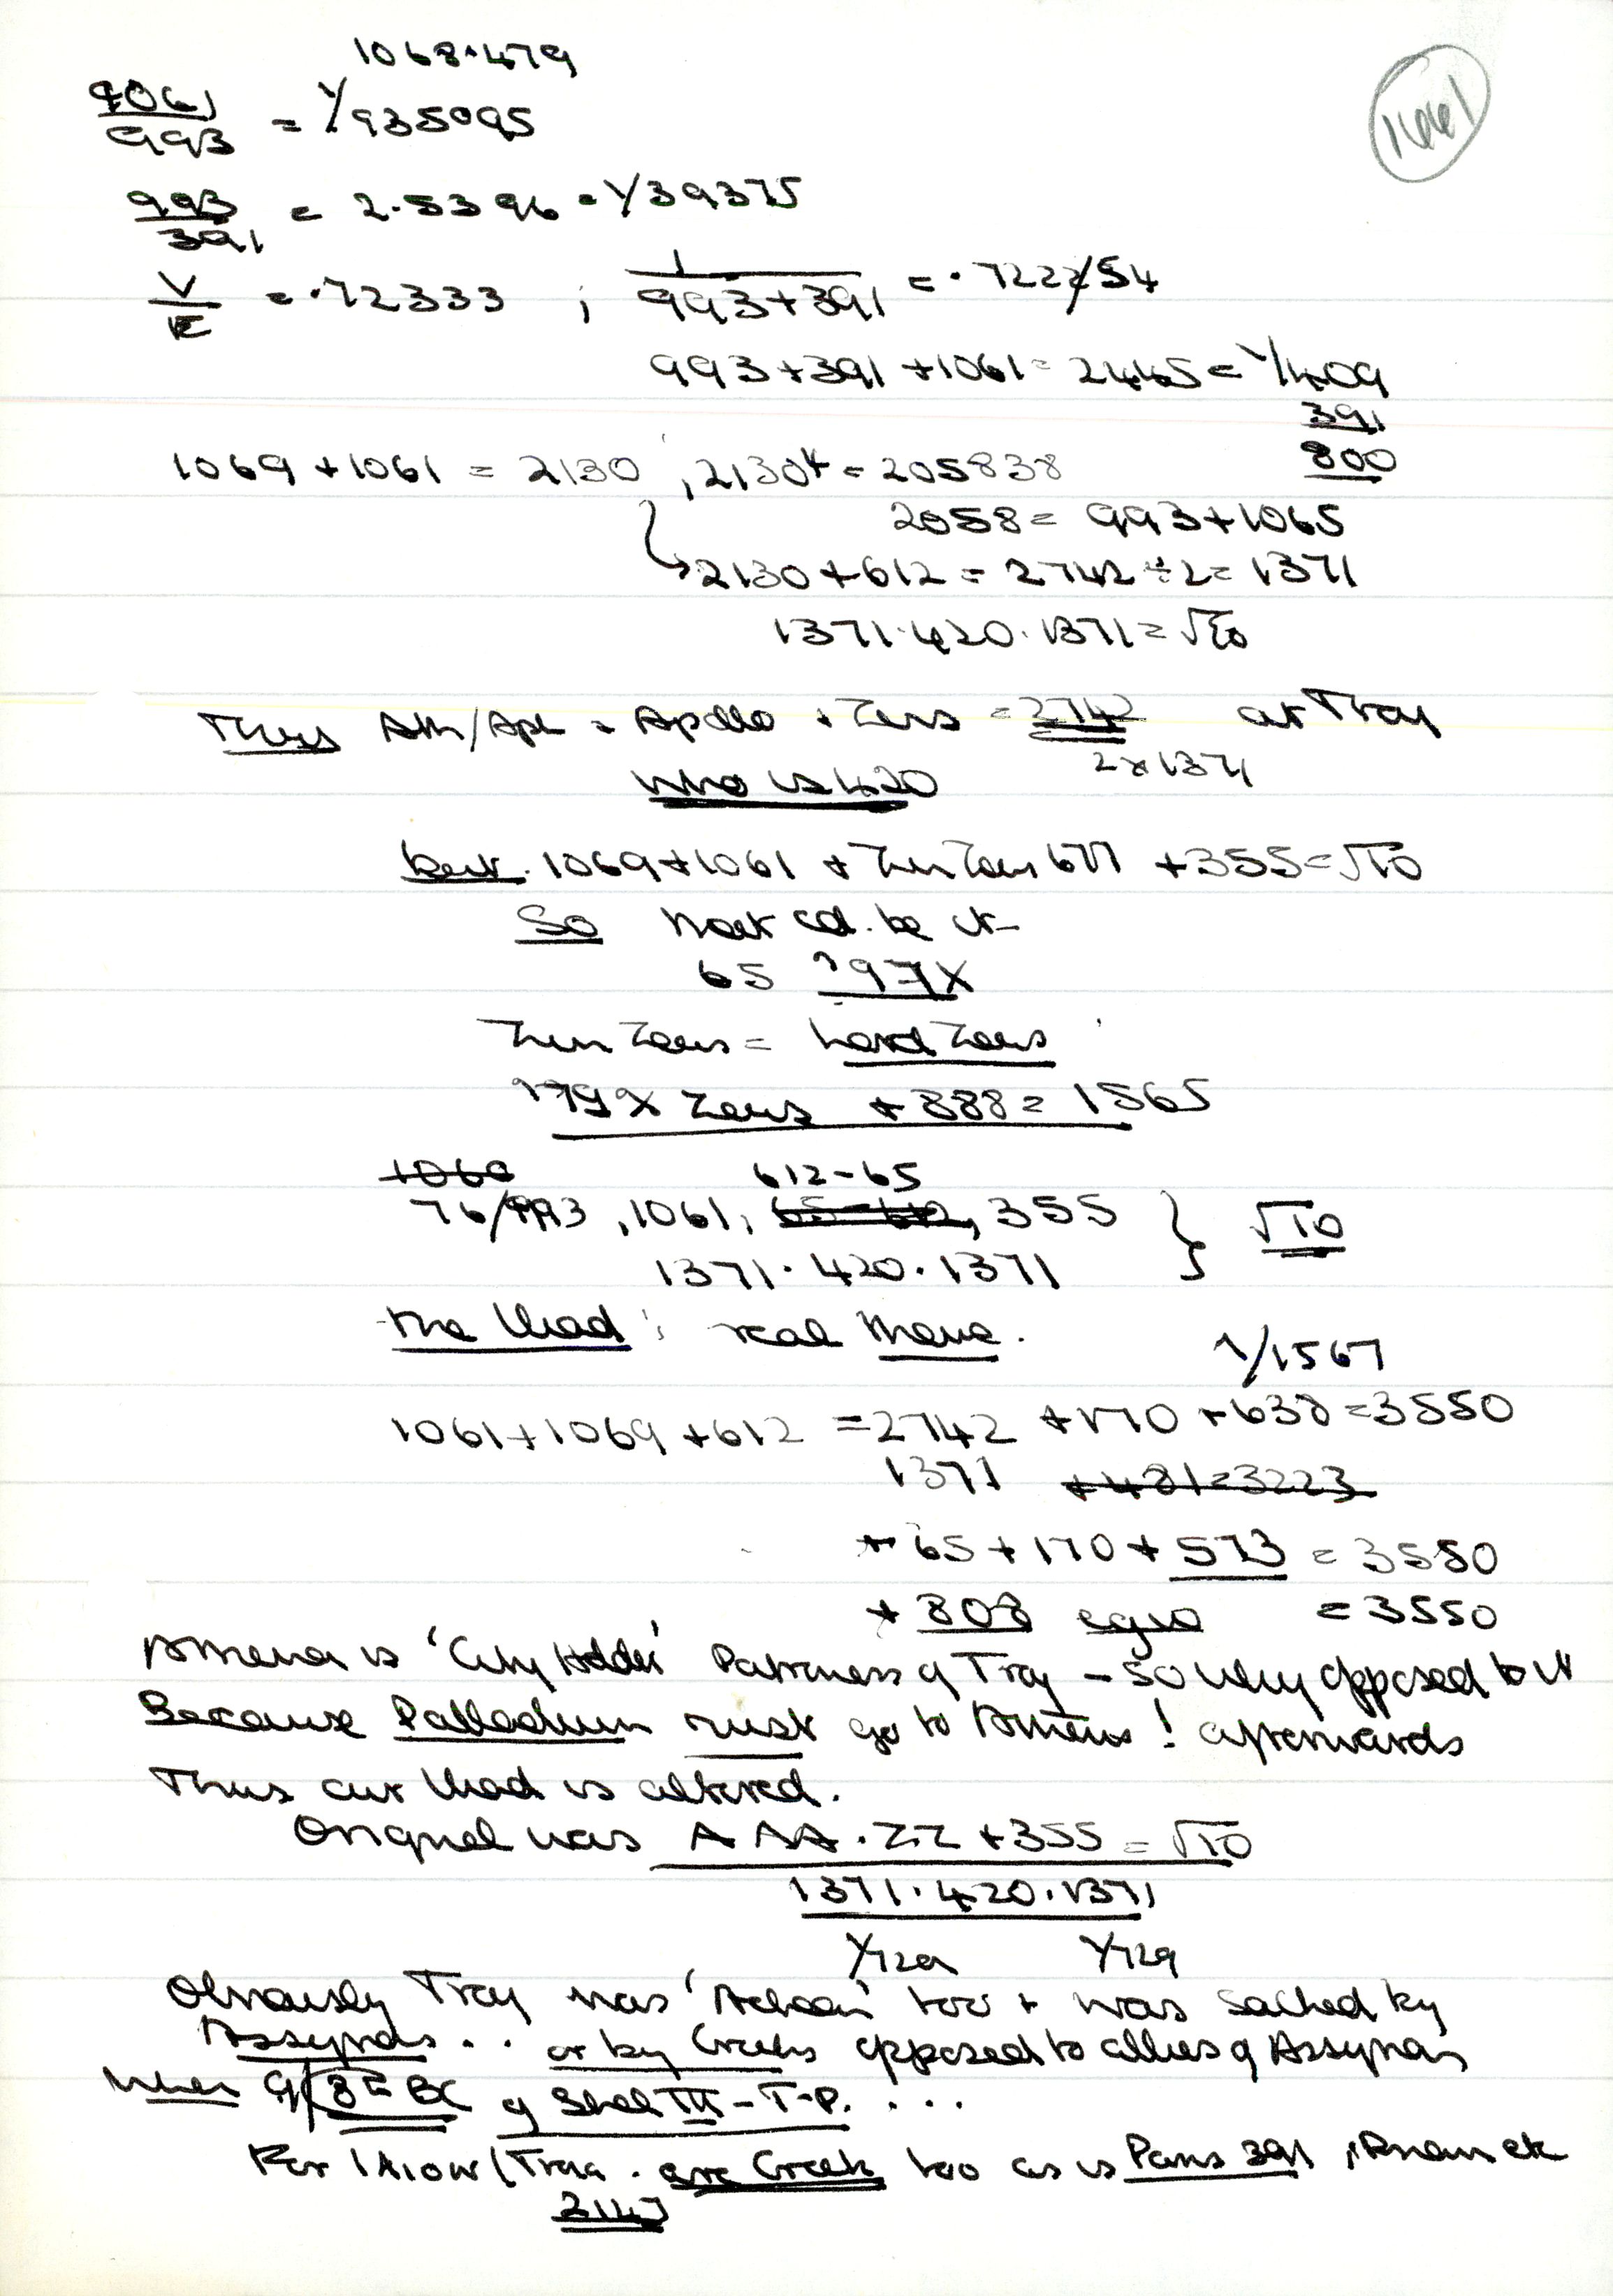 1068·479
1061/993 = 1/935095
1661
993/391 = 2.5396 = 1/39375
V/E = .72333 ; 1/993+391 = .7222/54
993+391+1061 = 2445 = 1/409
391
800
1069+1061 = 2130, 2130⁴ = 205838
2058 = 993+1065
2130+612 = 2742÷2 = 1371
1371·420·1371 = √10
Thus Ath/Apl = Apollo + Zeus = 2742 at Troy
2x1371
who is 420
but. 1069+1061 + Zeus 677 +355 = √10
So that cd. be it –
65 ? 97X
Zeus = Lord Zeus
?79X Zeus +888 = 1565
1060
76/993, 1061, 612-65, 355 } √10
1371·420·1371
the Iliad: real theme.
1/1567
1061+1069+612 = 2742 +170 +638 = 3550
1371 +481=3223
+65+170+573 = 3550
+808 = 3550
Athena is 'City Holder' Patroness of Troy – so why opposed to it
Because Palladium must go to Athens! afterwards
Thus our Iliad is altered.
Original was AAA·ZZ +355 = √10
1371·420·1371
1/729 1/729
Obviously Troy was 'Achaean' too + was sacked by
Assyrians .. or by Greeks opposed to allies of Assyrians
when 9/8th BC of Shal III – T-P. ...
For are Greek too as is Paris 391, Priam etc